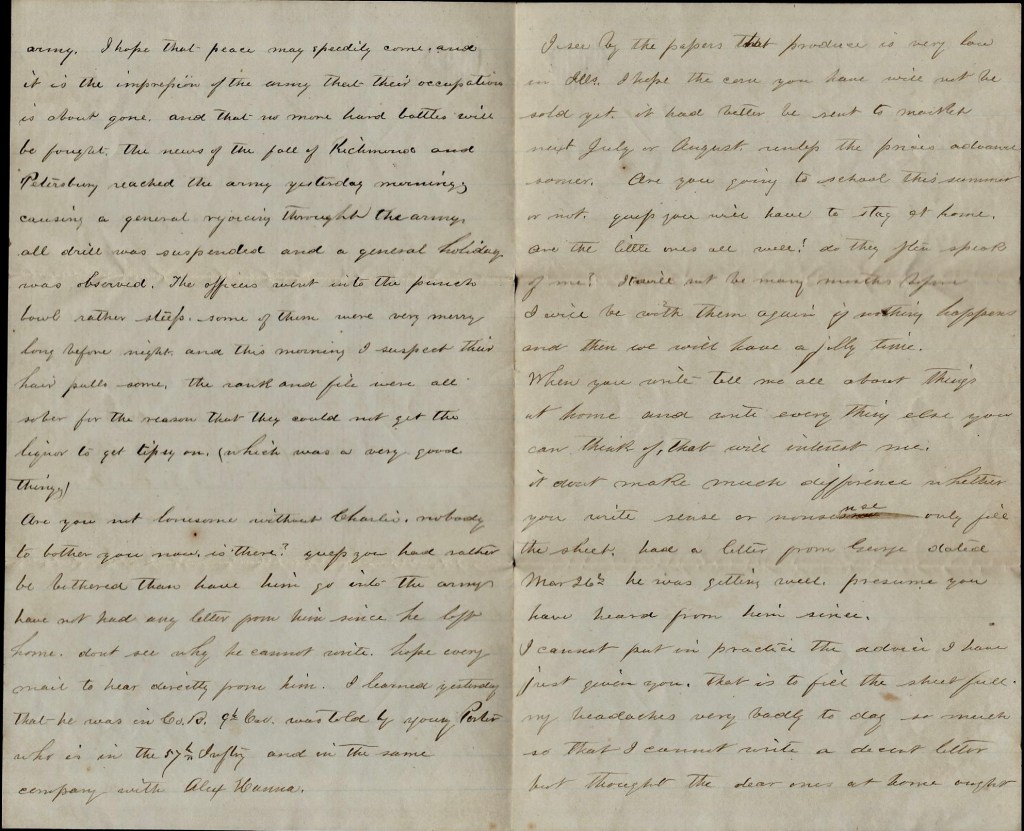 army. I hope that peace may speedily come, and
it is the impression of the army that their occupation
is about gone. and that no more hard battles will
be fought. the news of the fall of Richmond and
Petersburg reached the army yesterday morning,
causing a general rejoicing throught the army,
all drill was suspended and a general holiday
was observed. The officers went into the punch
bowl rather steep. some of them were very merry
long before night. and this morning I suspect their
hair pulls some. the rank and file were all
sober for the reason that they could not get the
liquor to get tipsy on. (which was a very good
thing,)
Are you not lonesome without Charlie. nobody
to bother you now, is there? guess you had rather
be bothered than have him go into the army
have not had any letter from him since he left
home. dont see why he cannot write. hope every
mail to hear directly from him. I learned yesterday
that he was in Co. B. 9th Cav. was told by young Porter
who is in the 57th Inftry and in the same
company with Alex Hanna.
I see by the papers that produce is very low
in Ills. I hope the corn you have will not be
sold yet. it had better be sent to market
next July or August. unless the prices advance
sooner. Are you going to school this summer
or not. guess you will have to stay at home.
are the little ones all well? do they often speak
of me? It will not be many months before
I will be with them again if nothing happens
and then we will have a jolly time.
When you write tell me all about things
at home and write every thing else you
can think of, that will interest me.
it dont make much difference whether
you write sense or nonsense only fill
the sheet. had a letter from George dated
Mar 26th he was getting well. presume you
have heard from him since.
I cannot put in practice the advice I have
just given you. that is to fill the sheet full.
my headaches very badly to day so much
so that I cannot write a decent letter
but thought the dear ones at home ought